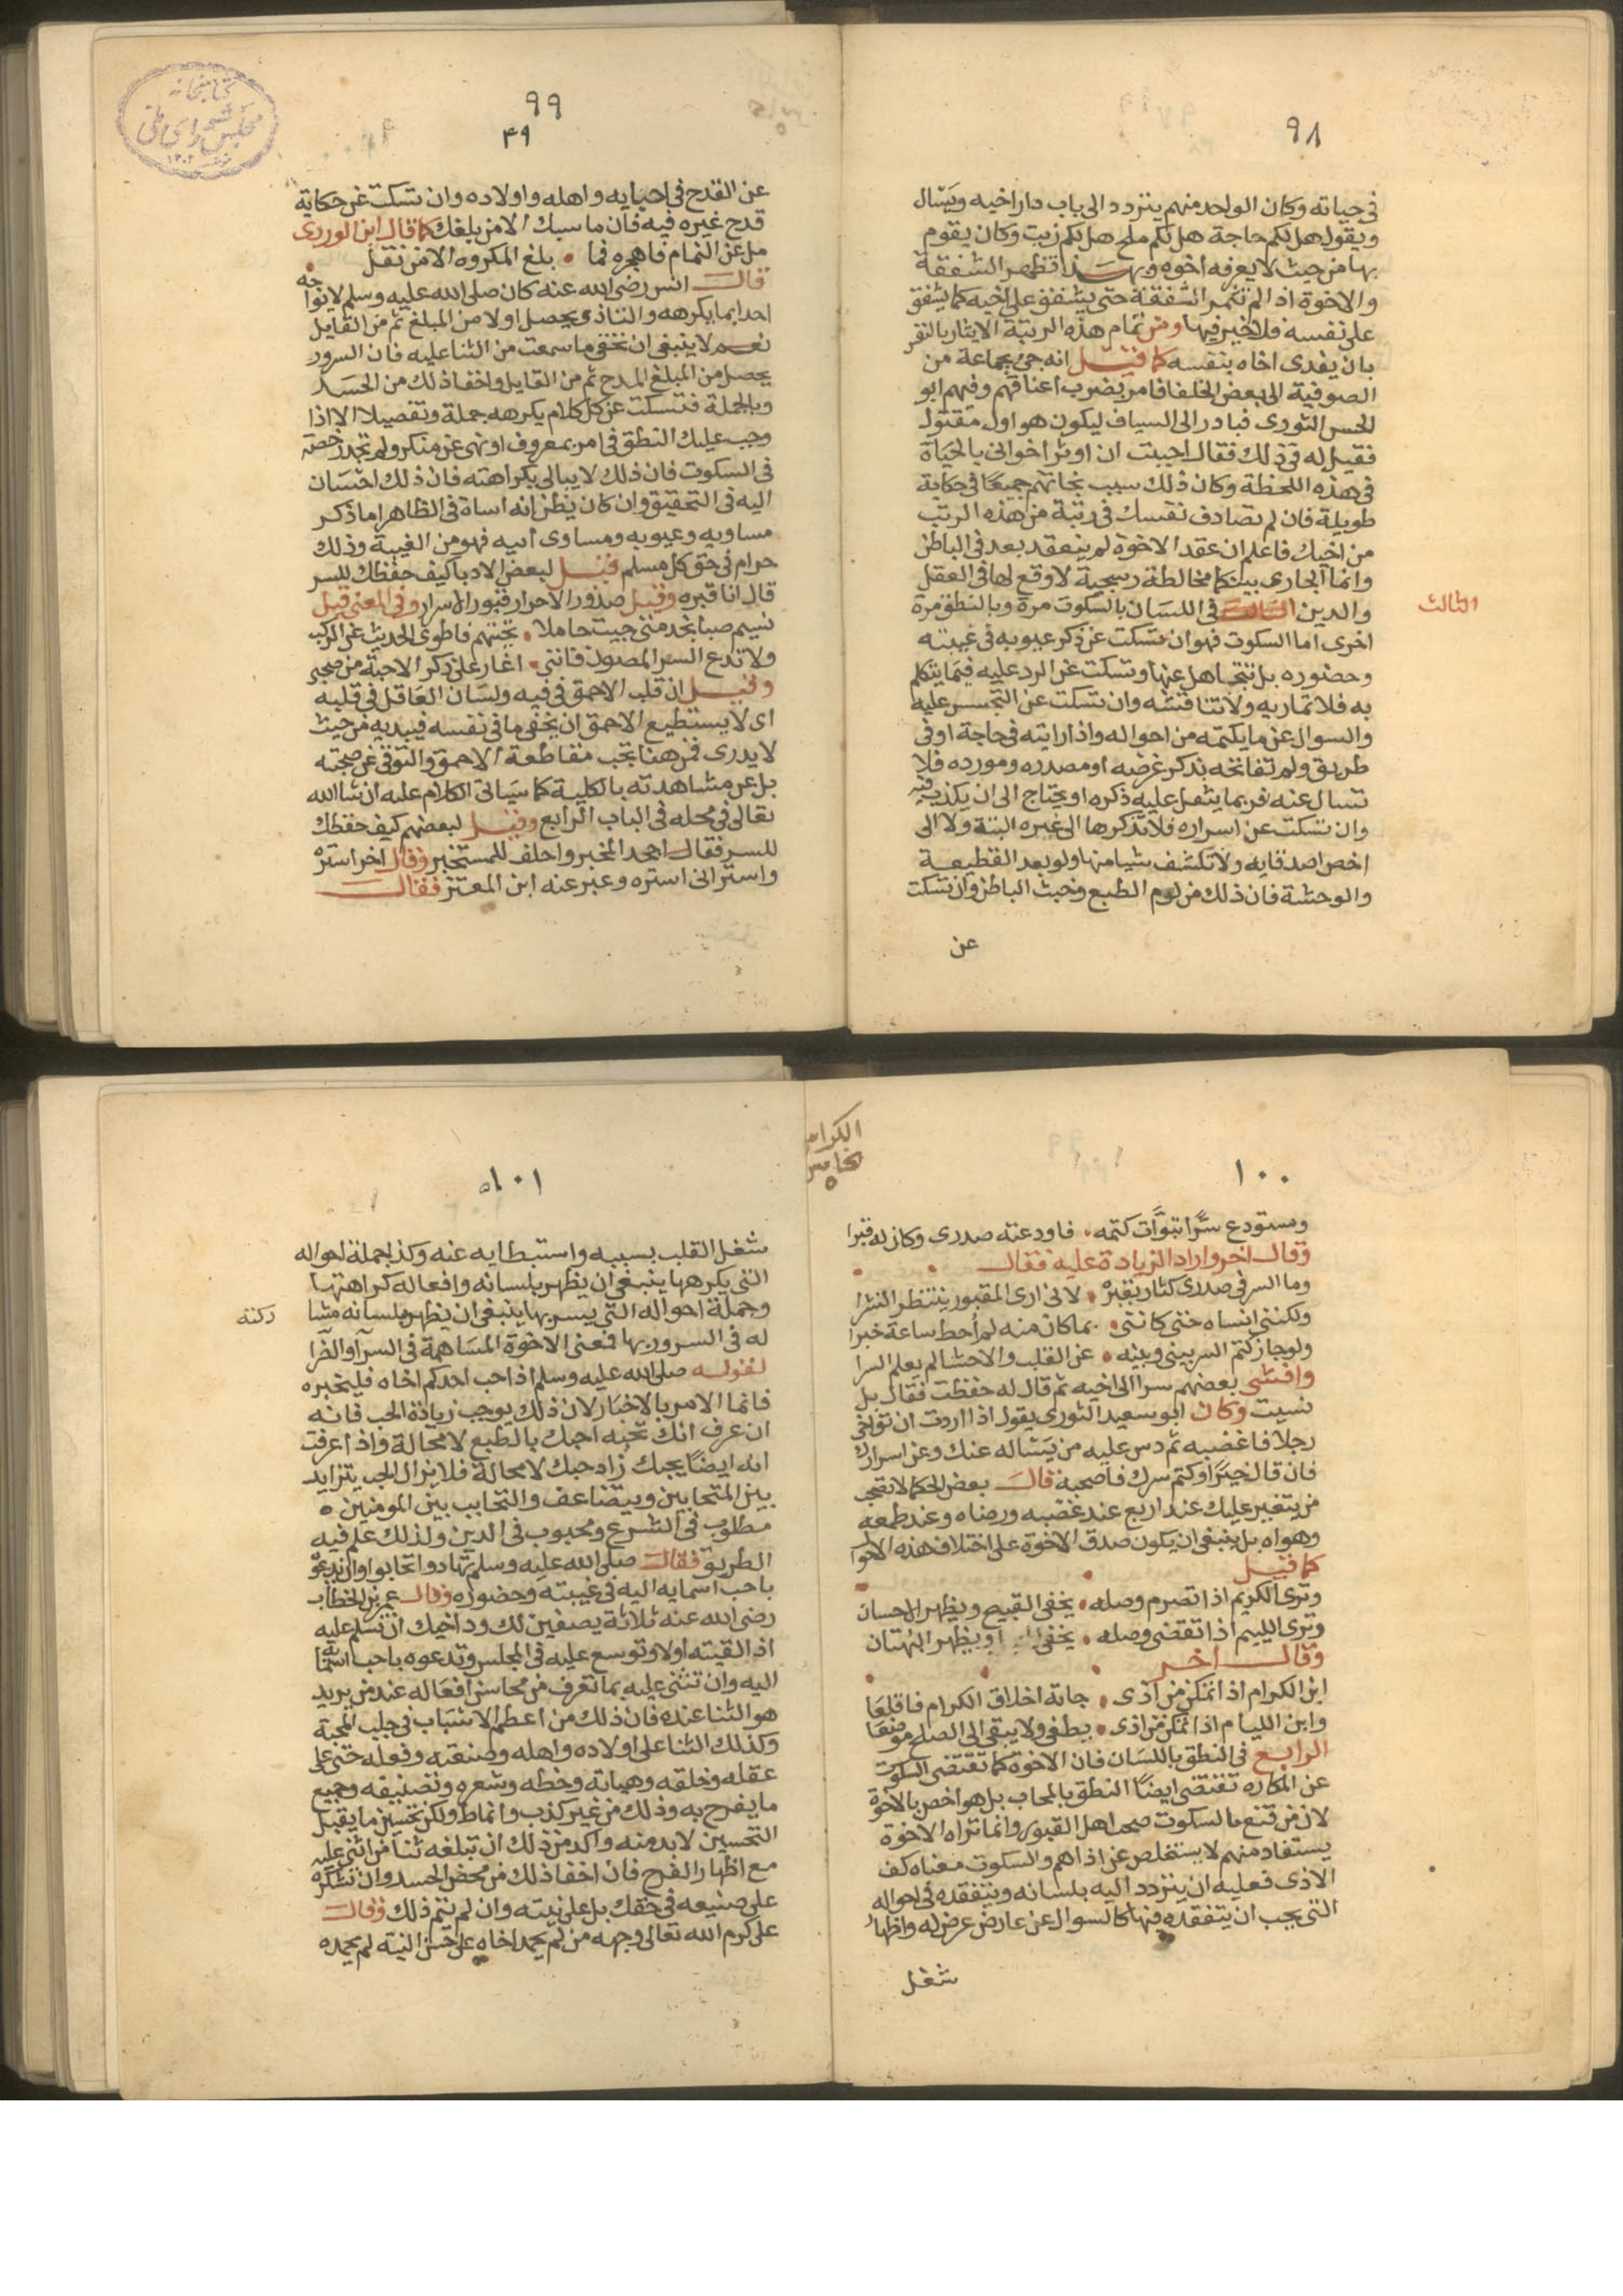 ٩٨
في حياته وكان الواحد منهم يتردد الى باب دار اخيه ويسَال
ويقول هل لكم حاجة هل لكم ملح هل لكم زيت وكان يقوم
بها من حيث لا يعرفه اخوه وبهذا تظهر الشفقة
والاخوة اذا لم تثمر الشفقة حتى يشفق على اخيه كما يشفق
على نفسه فلا خير فيها ومن تمام هذه الرتبة الايثار بالنفس
بان يفدى اخاه بنفسه كما قيل انه جئ بجماعة من
الصوفية الى بعض الخلفا فامر بضرب اعناقهم وفيهم ابو
الحسن النورى فبادر الى السياف ليكون هو اول مقتول
فقيل له في ذلك فقال احببت ان اوثر اخوانى بالحياة
في هذه اللحظة وكان ذلك سبب نجاتهم جميعًا في حكاية
طويلة فان لم تصادف نفسك في رتبة من هذه الرتب
من اخيك فاعلم ان عقد الاخوة لم ينعقد بعد في الباطن
وانما الجارى بينكما مخالطة رسمية لا وقع لها في العقل
والدين الثالث في اللسَان بالسكوت مرة وبالنطق مرة
الثالث
اخرى اما السكوت فهو ان تسكت عن ذكر عيوبه في غيبته
وحضوره بل تتجاهل عنها وتسكت عن الرد عليه فيما يتكلم
به فلا تماريه ولا تناقشه وان تسكت عن التجسس عليه
والسوال عن ما يكتمه من احواله واذا رايته في حاجة او في
طريق ولم تفاتحه بذكر غرضه او مصدره ومورده فلا
تسال عنه فربما يثقل عليه ذكره او يحتاج الى ان يكذب فيه
وان تسكت عن اسراره فلا تذكرها الى غيره البتة ولا الى
اخص اصدقايه ولا تكشف شيا منها ولو بعد القطيعة
والوحشة فان ذلك من لوم الطبع وخبث الباطن وان تسكت
عن
٩٩
٤٩
كتابخانه
مجلس شوراى ملى
عن القدح في احبايه واهله واولاده وان تسكت عن حكاية
قدح غيره فيه فان ما سبك الا من بلغك كما قال ابن الوردى
مل عن النمام فاهجره فما • بلغ المكروه الا من نقل
قال انس رضى الله عنه كان صلى الله عليه وسلم لا يواجه
احدا بما يكرهه والتاذى يحصل اولا من المبلغ ثم من القايل
نعم لا ينبغى ان تخفى ما سمعت من الثنا عليه فان السرور
يحصل من المبلغ المدح ثم من القايل واخفا ذلك من الحسَد
وبالجملة فتسكت عن كل كلام يكرهه جملة وتفصيلا الا اذا
وجب عليك النطق في امر بمعروف او نهى عن منكر ولم تجد رخصة
في السكوت فان ذلك لا يبالى بكراهته فان ذلك احسَان
اليه في التحقيق وان كان يظن انه اساة في الظاهر اما ذكر
مساويه وعيوبه ومساوى اهله فهو من الغيبة وذلك
حرام في حق كل مسلم قيل لبعض الادبا كيف حفظك للسر
قال انا قبره وقيل صدور الاحرار قبور الاسرار وفي المعنى قيل
نسيم صبا نجد متى جيت حاملا • تحيتهم فاطوى الحديث عن الركب
ولا تدع السر المصون فاننى • اغار على ذكر الاحبة من صحبى
وقيل ان قلب الاحمق في فيه ولسَان العَاقل في قلبه
اى لا يستطيع الاحمق ان يخفى ما في نفسه فيبديه من حيث
لا يدرى فمن هنا يجب مقاطعة الاحمق والتوقى عن صحبته
بل عن مشاهدته بالكلية كما سيَاتى الكلام عليه ان شا الله
تعالى في محله في الباب الرابع وقيل لبعضهم كيف حفظك
للسر فقال اجحد المخبر واحلف للمستخبر وقال اخر استره
واستر انى استره وعبر عنه ابن المعتز فقال
١٠٠
الكراس
الخامس
٥
ومستودع سرًّا تبوَّات كتمه • فاودعته صدرى وكان له قبرا
وقال اخر واراد الزيادة عليه فقال
وما السر في صدرى كثاو بقبره • لانى ارى المقبور ينتظر النشرا
ولكننى انساه حتى كاننى • بما كان منه لم اُحط ساعة خبرا
ولو جاز كتم السر بينى وبينه • عن القلب والاحشا لم يعلم السرا
وافشى بعضهم سرا الى اخيه ثم قال له حفظت فقال بل
نسيت وكان ابو سعيد الثورى يقول اذا اردت ان تواخى
رجلا فاغضبه ثم دس عليه من يَسَاله عنك وعن اسرارك
فان قال خيرًا وكتم سرك فاصحبه قال بعض الحكما لا تصحب
من يتغير عليك عند اربع عند غضبه ورضاه وعند طمعه
وهواه بل ينبغى ان يكون صدق الاخوة على اختلاف هذه الاحوال
كما قيل
وترى الكريم اذا تصرم وصله • يخفى القبيح ويظهر الاحسان
وترى اللييم اذا تقضى وصله • يخفى ويظهر البُهتان
وقال اخر
ابن الكرام اذا تمكن من اذى • جاته اخلاق الكرام فاقلعَا
وابن الليام اذا تمكن من اذى • يطغى ولا يبقى الى الصلح موضعَا
الرابع في النطق باللسَان فان الاخوة كما تقتضى السكوت
عن المكاره تقتضى ايضًا النطق بالمحاب بل هو اخص بالاخوة
لان من قنع بالسكوت صحب اهل القبور وانما تراد الاخوة
يستفاد منهم لا يستخلص عن اذاهم والسكوت معناه كف
الاذى فعليه ان يتردد اليه بلسانه ويتفقده في احواله
التى يجب ان يتفقده فيها كالسوال عن عارض عرض له واظهار
شغل
١٠١
شغل القلب بسببه واستبطايه عنه وكذا جملة احواله
التى يكرهها ينبغى ان يظهر بلسانه وافعاله كراهتها
وجملة احواله التى يسر بها ينبغى ان يظهر بلسانه مشا
ركته
له في السرور بها فمعنى الاخوة المسَاهمة في السرّآ والضرّا
لقوله صلى الله عليه وسلم اذا حب احدكم اخاه فليخبره
فانما الامر بالاخبَار لان ذلك يوجب زيادة الحب فانه
ان عرف انك تحبه احبك بالطبع لا محالة واذا عرفت
انه ايضًا يحبك زاد حبك لا محالة فلا يزال الحب يتزايد
بين المتحابين ويتضاعف والتحابب بين المومنين
مطلوب في الشرع ومحبوب في الدين ولذلك علم فيه
الطريق فقال صلى الله عليه وسلم تهادوا تحابوا وان يدعو
باحب اسمايه اليه في غيبته وحضوره وقال عمر بن الخطاب
رضى الله عنه ثلاثة يصفين لك ود اخيك ان تسلم عليه
اذا لقيته اولا وتوسع عليه في المجلس وتدعوه باحب اسمائه
اليه وان تثنى عليه بما تعرف من محاسن افعَاله عند من يريد
هو الثنا عنده فان ذلك من اعظم الاسَباب في جلب المحبة
وكذلك الثنا على اولاده واهله وصنعته وفعله حتى على
عقله وخلقه وهياته وخطه وشعره وتصنيفه وجميع
ما يفرح به وذلك من غير كذب وانماط ولكن تحسين ما يقبل
التحسين لا بد منه واكد من ذلك ان تبلغه ثنا من اثنى عليه
مع اظهار الفرح فان اخفا ذلك من محض الحسد وان تشكره
على صنيعه في حقك بل على نيته وان لم يتم ذلك وقال
على كرم الله تعالى وجهه من لم يحمد اخاه على حسن النية لم يحمده